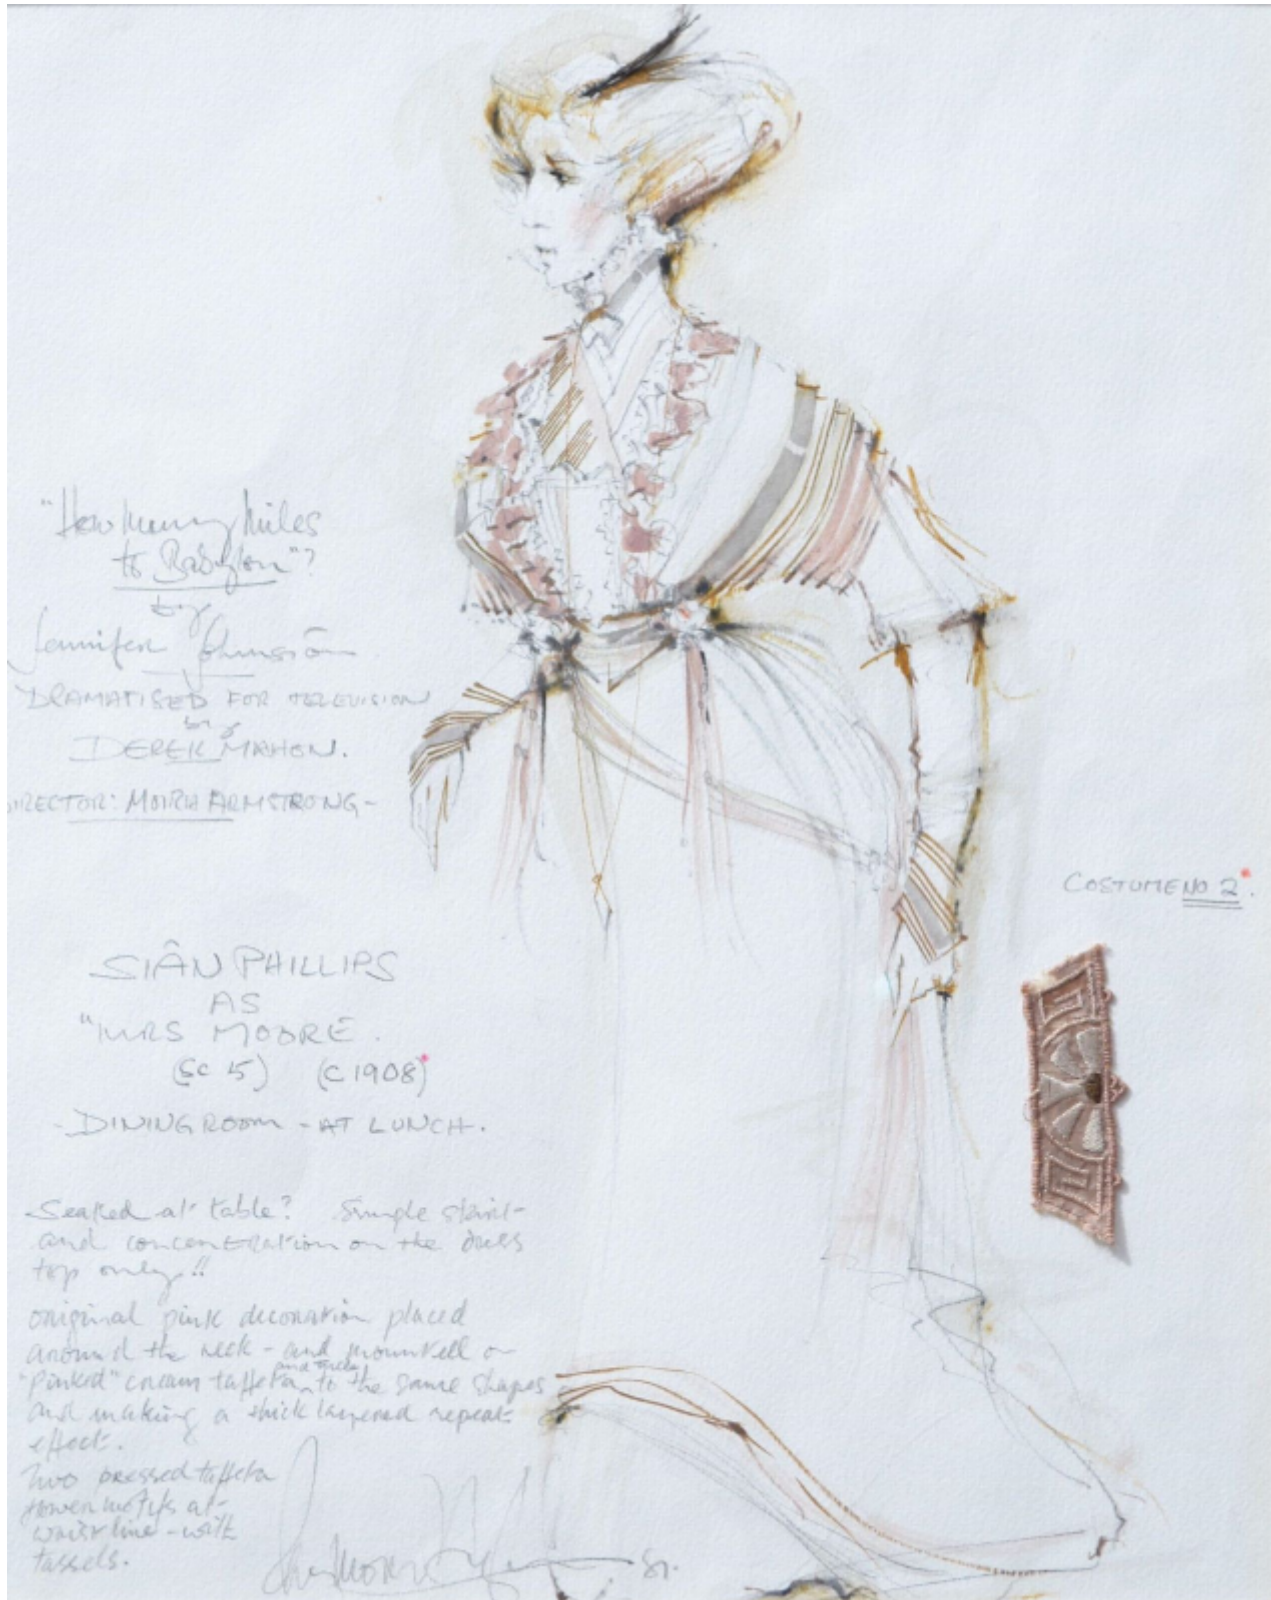 "How Many Miles
to Babylon"?
by
Jennifer Johnston
DRAMATISED FOR TELEVISION
by
DEREK MAHON.
DIRECTOR: MOIRA ARMSTRONG-
COSTUME NO 2.
SIÂN PHILLIPS
AS
"MRS MOORE.
(SC 5) (C 1908)
-DINING ROOM - AT LUNCH.
Seated at table? Simple skirt
and concentration on the dress
top only!!
original pink decoration placed
around the neck - and mounted on
"pinked" cream taffeta to the same shapes
and making a thick layered repeat
effect.
Two pressed taffeta
flower motifs at
waistline - with
tassels.
81.